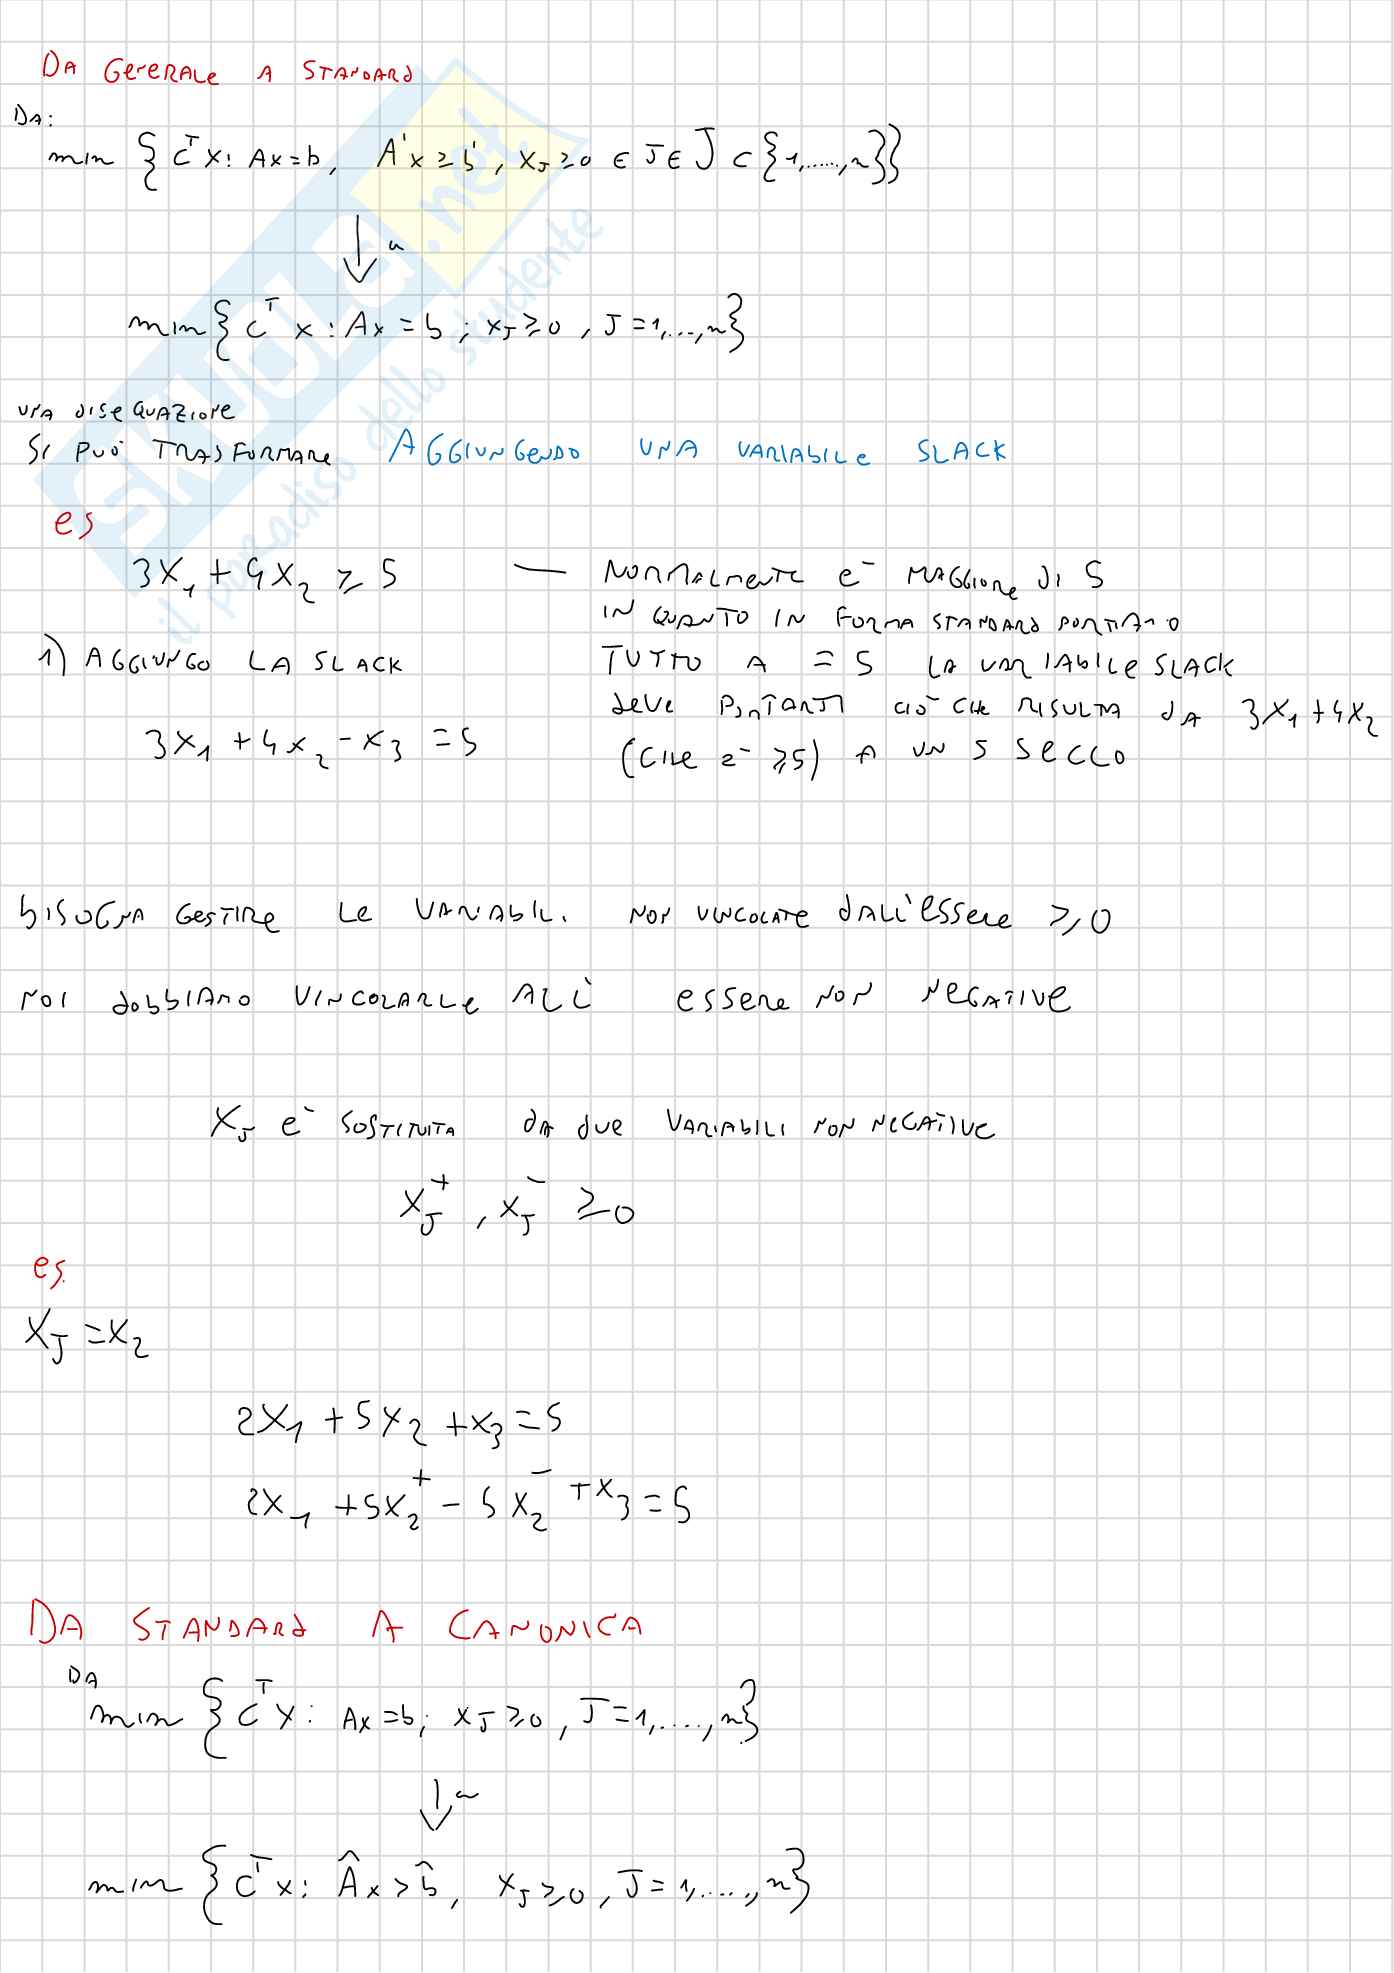 DA GENERALE A STANDARD
DA:
min {c^T x: Ax=b, A'x≥b', x_J≥0 ∈ J∈J⊂{1,.....,n}}
↓ a
min{c^T x: Ax=b; x_J≥0, J=1,...,n}
UNA DISEQUAZIONE
SI PUÒ TRASFORMARE AGGIUNGENDO UNA VARIABILE SLACK
es
3x₁+4x₂≥5 — NORMALMENTE e` MAGGIORE DI 5
IN QUANTO IN FORMA STANDARD PORTIAMO
1) AGGIUNGO LA SLACK
TUTTO A =5 LA VARIABILE SLACK
DEVE PORTARTI CIÒ CHE RISULTA DA 3x₁+4x₂
3x₁+4x₂-x₃=5
(CHE e` ≥5) A UN 5 SECCO
BISOGNA GESTIRE LE VARIABILI NON VINCOLATE DALL'ESSERE ≥0
NOI DOBBIAMO VINCOLARLE ALL' ESSERE NON NEGATIVE
x_J e` SOSTITUITA DA DUE VARIABILI NON NEGATIVE
x_J⁺, x_J⁻ ≥0
es.
x_J=x₂
2x₁+5x₂+x₃=5
2x₁+5x₂⁺-5x₂⁻+x₃=5
DA STANDARD A CANONICA
DA
min {c^T x: Ax=b; x_J≥0, J=1,....,n}
↓ a
min {c^T x: Âx>b̂, x_J≥0, J=1,....,n}
SKUOLA.net
il paradiso dello studente